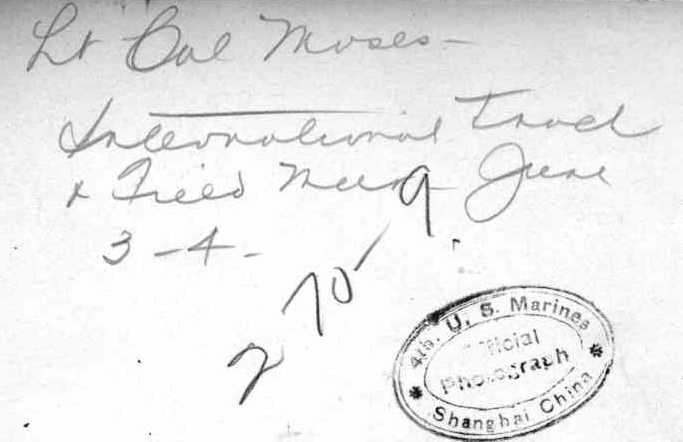 Lt Col Moses -
International Track
& Field Meet June
3 - 4 -
2 70 9.
4th. U. S. Marines
Official
Photograph
Shanghai China